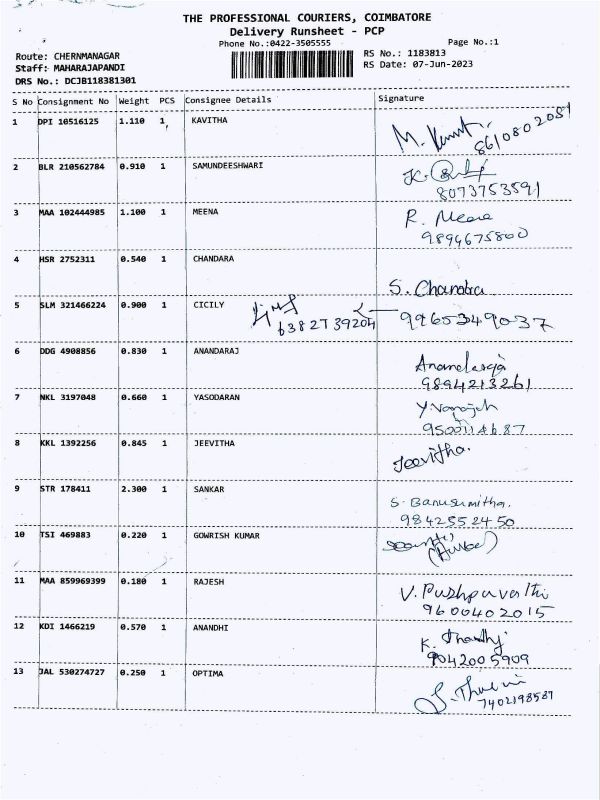 THE PROFESSIONAL COURIERS, COIMBATORE
Delivery Runsheet - PCP
Phone No.:0422-3505555
Page No.:1
Route: CHERNMANAGAR
RS No.: 1183813
Staff: MAHARAJAPANDI
RS Date: 07-Jun-2023
DRS No.: DCJB118381301
S No Consignment No Weight PCS Consignee Details Signature
1 DPI 10516125 1.110 1 KAVITHA
M. 8610802081
2 BLR 210562784 0.910 1 SAMUNDEESHWARI
K.
8073753591
3 MAA 102444985 1.100 1 MEENA R. Meena
9894675800
4 HSR 2752311 0.540 1 CHANDARA
S. Chandra
5 SLM 321466224 0.900 1 CICILY
6382739204 9965349037
6 DDG 4908856 0.830 1 ANANDARAJ
Anandaraja
9894213261
7 NKL 3197048 0.660 1 YASODARAN
9500114687
8 KKL 1392256 0.845 1 JEEVITHA
Jeevitha.
9 STR 178411 2.300 1 SANKAR
S. Banusumitha.
9842552450
10 TSI 469883 0.220 1 GOWRISH KUMAR
11 MAA 859969399 0.180 1 RAJESH
V. Pushpavathi
9600402015
12 KDI 1466219 0.570 1 ANANDHI
K.
9042005909
13 JAL 530274727 0.250 1 OPTIMA
7402198587